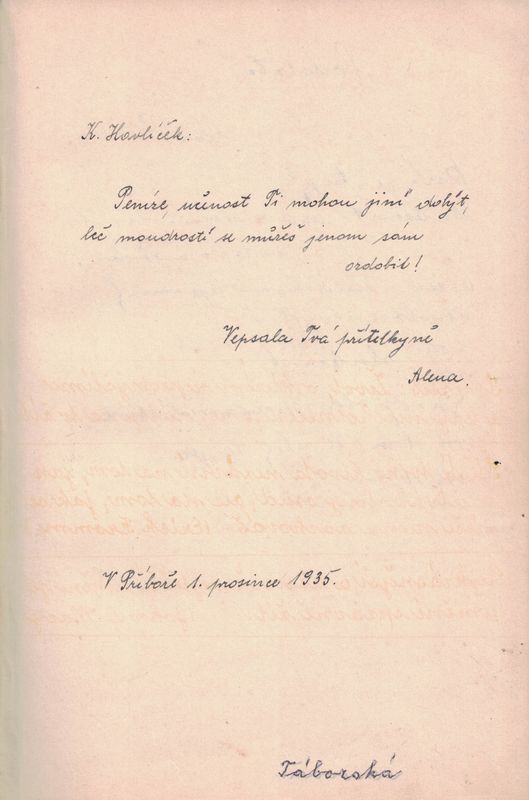 K. Havlíček:
Peníze, učenost Ti mohou jiní dobýt,
leč moudrostí se můžeš jenom sám
ozdobit!
Vepsala Tvá přítelkyně
Alena.
V Příboře 1. prosince 1935.
Táborská